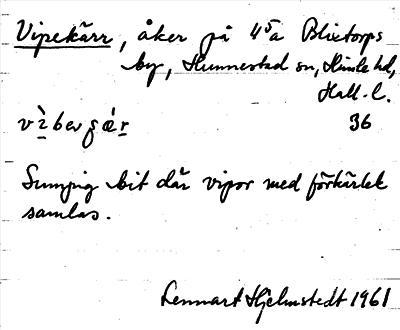 Vipekärr, åker på 4⁵a Blixtorps
by, Hunnestad sn, Himle hd,
Hall. l.
36
Sumpig bit där vipor med förkärlek
samlas.
Lennart Hjelmstedt 1961